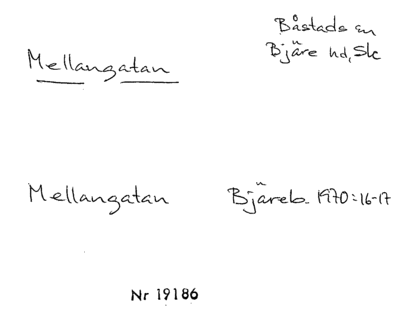 Båstads sn
Bjäre hd, Sk
Mellangatan
Mellangatan Bjäreb. 1970:16-17
Nr 19186